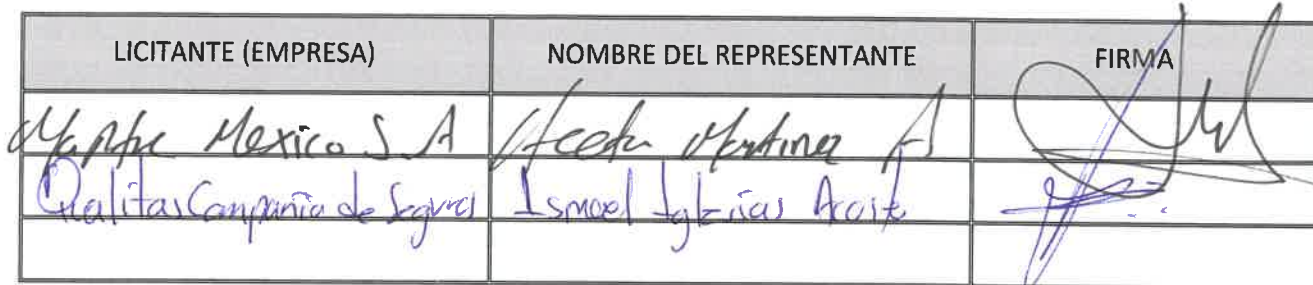 LICITANTE (EMPRESA) NOMBRE DEL REPRESENTANTE FIRMA
Mapfre Mexico S A Hector Martinez A
Qualitas Compañia de Seguros Ismael Iglesias Acosta